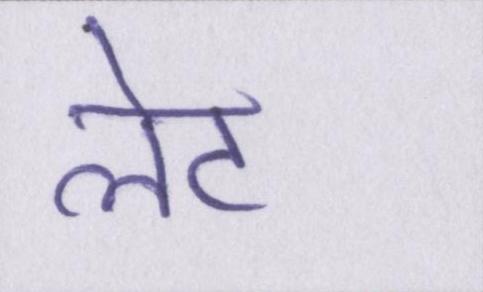 लेट